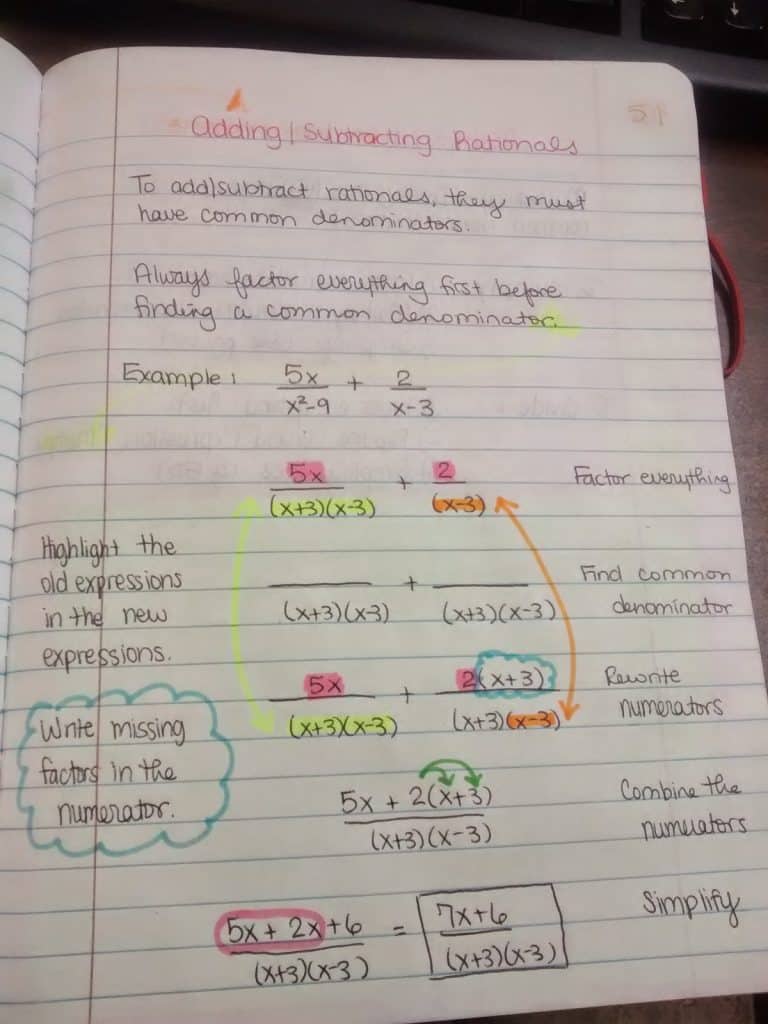 51
Adding | Subtracting Rationals
To add|subtract rationals, they must
have common denominators.
Always factor everything first before
finding a common denominator.
Example: 5x/x²-9 + 2/x-3
5x/(x+3)(x-3) + 2/(x-3) Factor everything
Highlight the
old expressions
in the new
expressions.
___/(x+3)(x-3) + ___/(x+3)(x-3) Find common
denominator
5x/(x+3)(x-3) + 2(x+3)/(x+3)(x-3) Rewrite
numerators
Write missing
factors in the
numerator.
5x + 2(x+3)/(x+3)(x-3) Combine the
numerators
5x + 2x+6/(x+3)(x-3) = 7x+6/(x+3)(x-3) Simplify